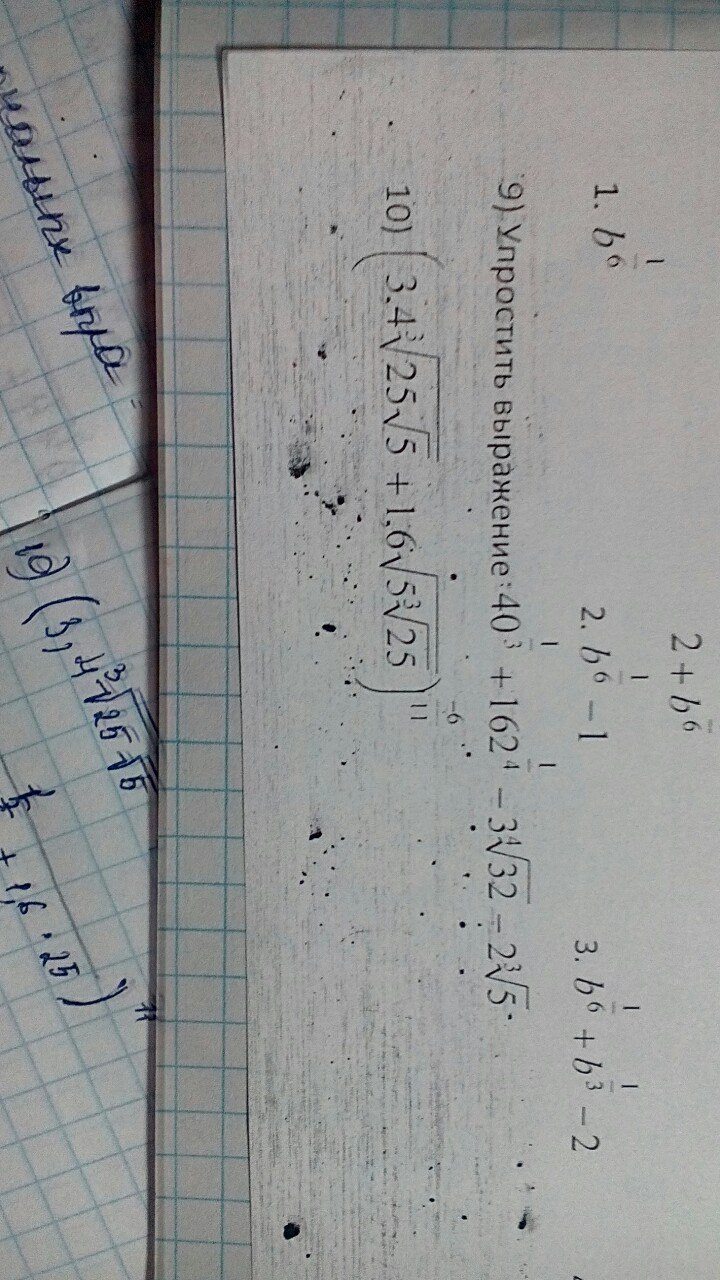 2 + b^{\frac{1}{6}}
1. b^{\frac{1}{6}} 2. b^{\frac{1}{6}} − 1 3. b^{\frac{1}{6}} + b^{\frac{1}{3}} − 2
9) Упростить выражение: 40^{\frac{1}{3}} + 162^{\frac{1}{4}} − 3∜32 − 2∛5.
10) (3.4∛(25√5) + 1.6√(5∛25))^{\frac{-6}{11}}
10) (3,4∛(25√5)
+ 1,6 · 25